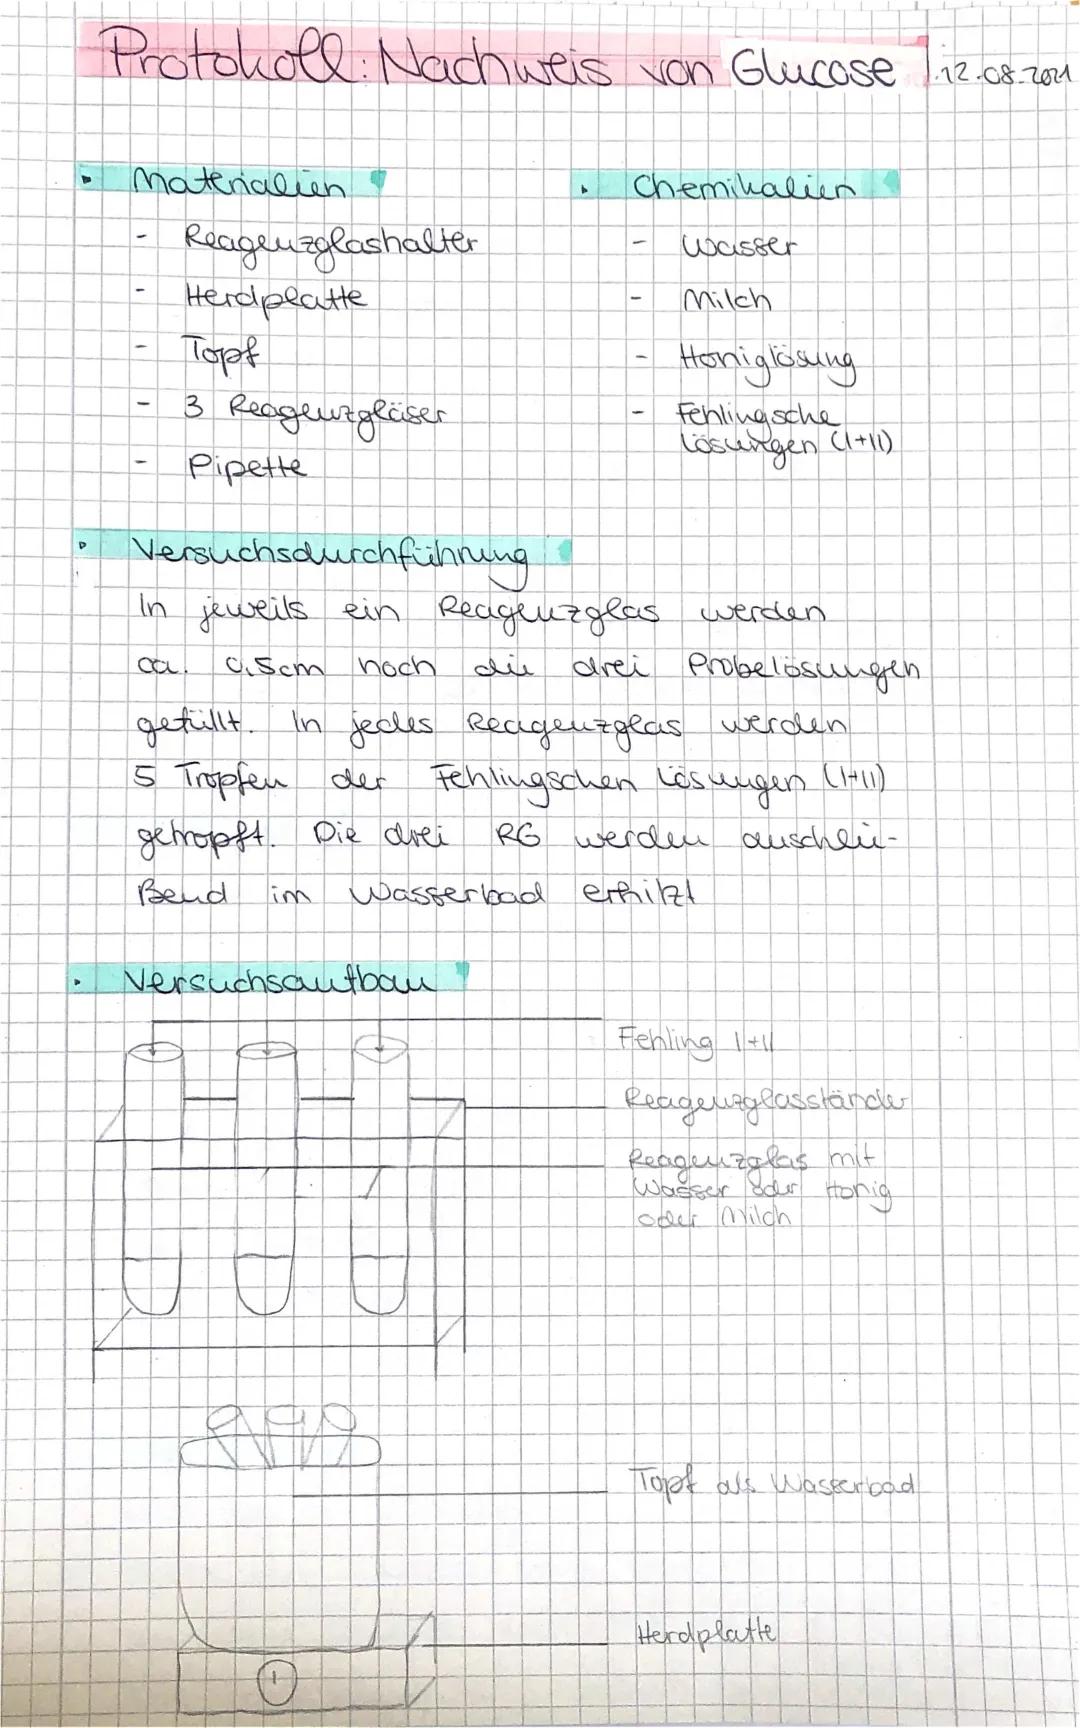 Protokoll: Nachweis von Glucose 12.08.2021
Materialien
- Reagenzglashalter
- Herdplatte
- Topf
- 3 Reagenzgläser
- Pipette
Chemikalien
- Wasser
- Milch
- Honiglösung
- Fehlingsche
Lösungen (I+II)
Versuchsdurchführung
In jeweils ein Reagenzglas werden
ca. 0,5cm hoch die drei Probelösungen
gefüllt. In jedes Reagenzglas werden
5 Tropfen der Fehlingschen Lösungen (I+II)
getropft. Die drei RG werden anschlie-
ßend im Wasserbad erhitzt
Versuchsaufbau
Fehling I+II
Reagenzglasständer
Reagenzglas mit
Wasser oder Honig
oder Milch
Topf als Wasserbad
Herdplatte